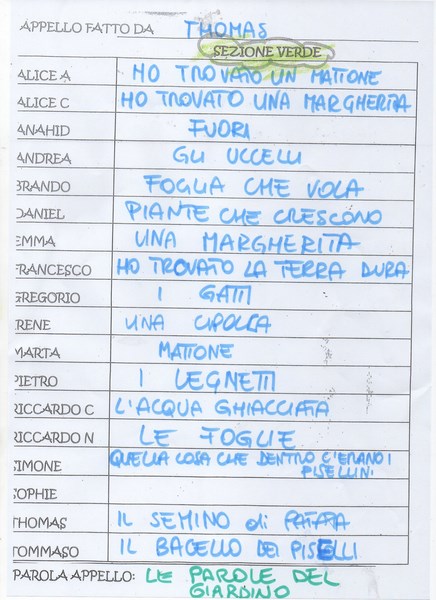 APPELLO FATTO DA THOMAS
SEZIONE VERDE
ALICE A HO TROVATO UN MATTONE
ALICE C HO TROVATO UNA MARGHERITA
ANAHID FUORI
ANDREA GLI UCCELLI
BRANDO FOGLIA CHE VOLA
DANIEL PIANTE CHE CRESCONO
EMMA UNA MARGHERITA
FRANCESCO HO TROVATO LA TERRA DURA
GREGORIO I GATTI
IRENE UNA CIPOLLA
MARTA MATTONE
PIETRO I LEGNETTI
RICCARDO C L'ACQUA GHIACCIATA
RICCARDO N LE FOGLIE
SIMONE QUELLA COSA CHE DENTRO C'ERANO I
PISELLINI
SOPHIE
THOMAS IL SEMINO di PATATA
TOMMASO IL BACELLO DEI PISELLI
PAROLA APPELLO: LE PAROLE DEL
GIARDINO